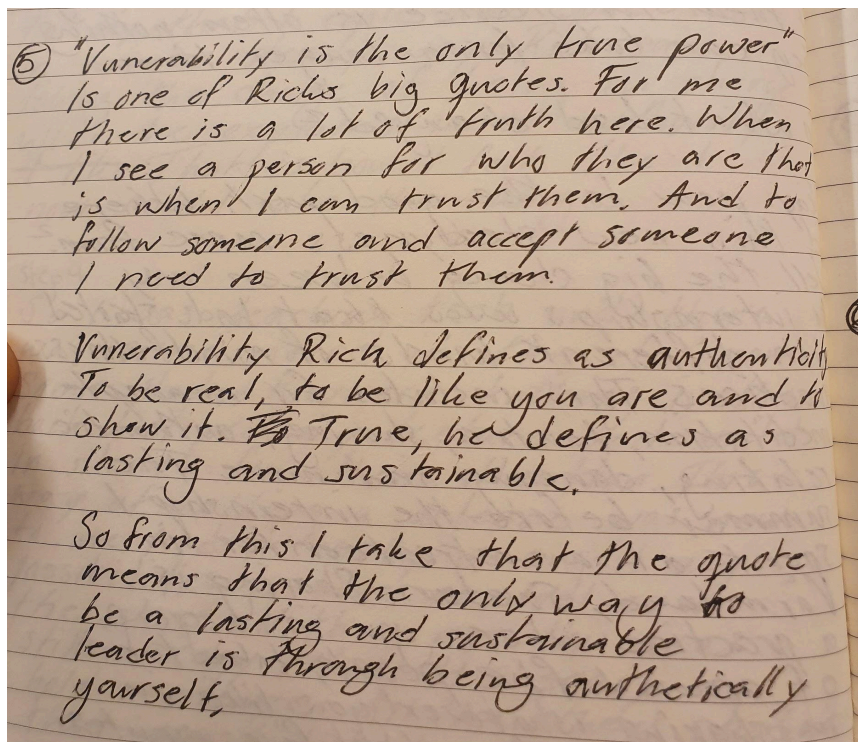 ⑤ "Vunerability is the only true power"
Is one of Ricks big quotes. For me
there is a lot of truth here. When
I see a person for who they are that
is when I can trust them. And to
follow someone and accept someone
I need to trust them.
Vunerability Rick defines as authenticity
To be real, to be like you are and to
show it. True, he defines as
lasting and sustainable.
So from this I take that the quote
means that the only way to
be a lasting and sustainable
leader is through being authetically
yourself,